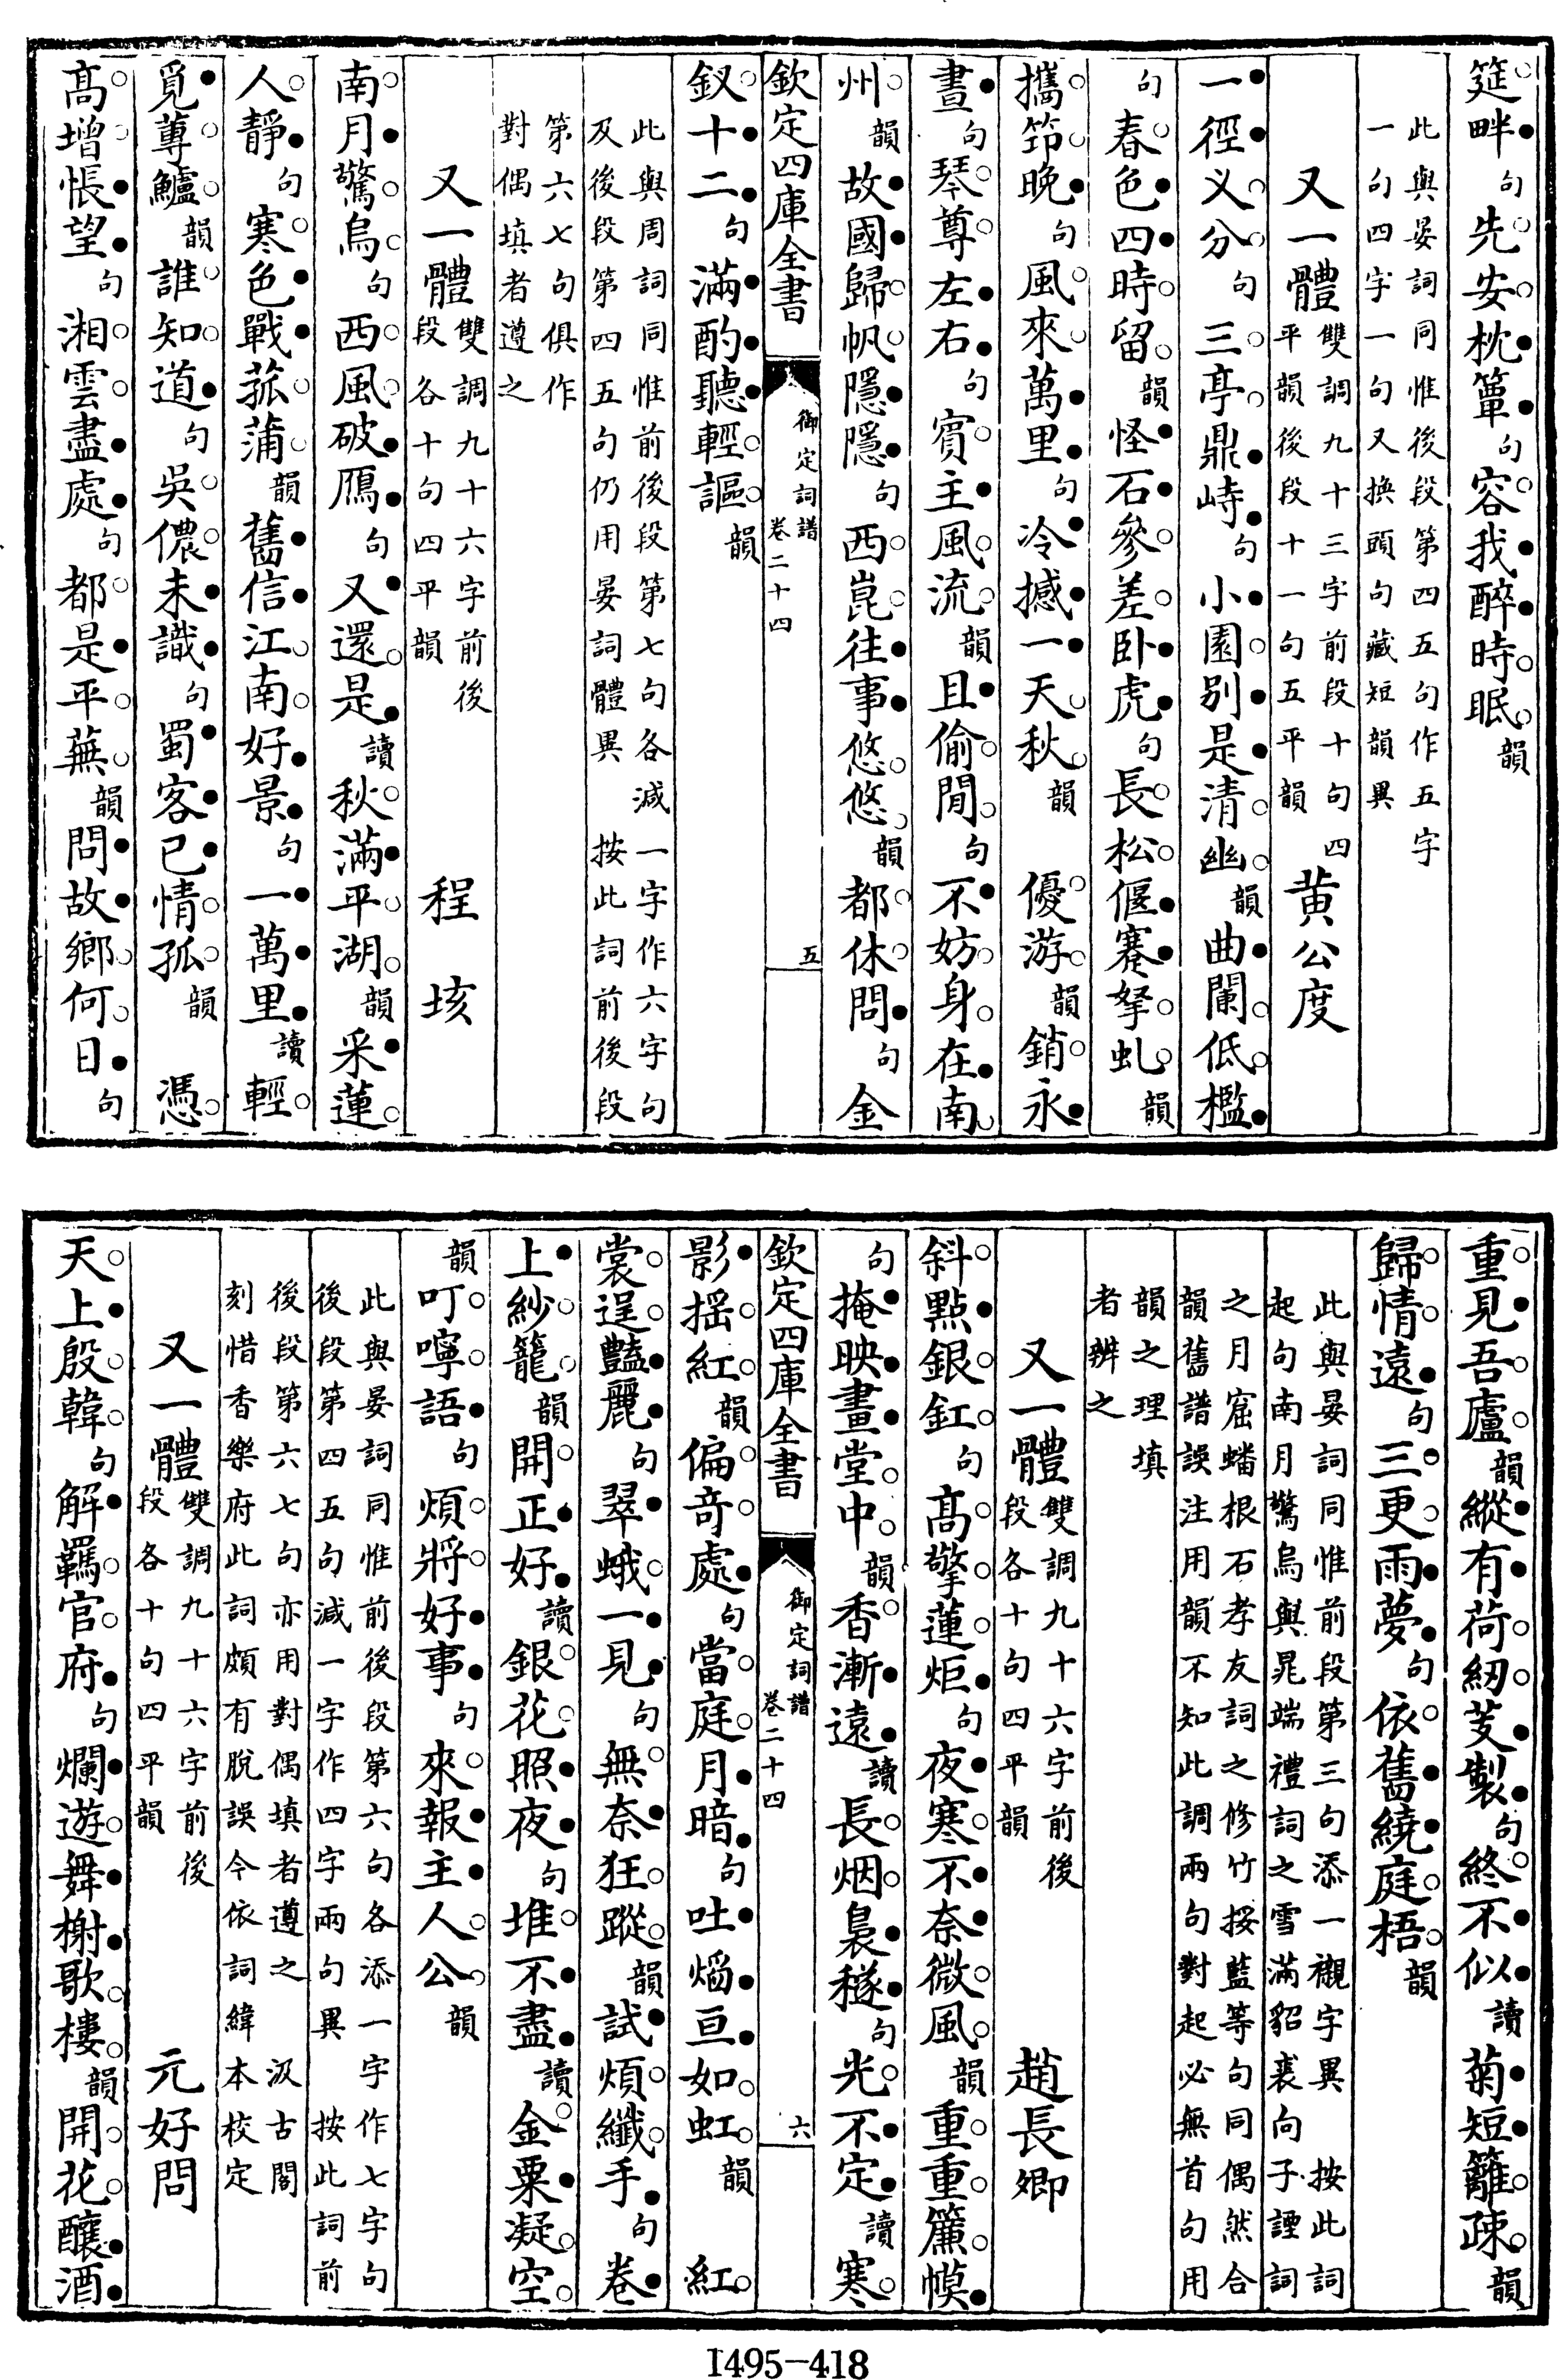 筵畔句先安枕簟句容我醉時眠韻
此與晏詞同惟後段第四五句作五字
一句四字一句又換頭句藏短韻異
又一體雙調九十三字前段十句四平韻後段十一句五平韻黄公度
一徑义分句三亭鼎峙句小園别是清幽韻曲闌低檻
句春色四時留韻怪石參差卧虎句長松偃蹇拏虬韻
攜笻晚句風來萬里句冷撼一天秋韻優游韻銷永
晝句琴尊左右句賓主風流韻且偷閒句不妨身在南
州韻故國歸帆隱隱句西崑往事悠悠韻都休問句金
欽定四庫全書 御定詞譜卷二十四 五
釵十二句滿酌聽輕謳韻
此與周詞同惟前後段第七句各減一字作六字句
及後段第四五句仍用晏詞體異 按此詞前後段
第六七句俱作
對偶填者遵之
又一體雙調九十六字前後段各十句四平韻程垓
南月驚烏句西風破鴈句又還是讀秋滿平湖韻采蓮
人靜句寒色戰菰蒲韻舊信江南好景句一萬里讀輕
覓蓴鱸韻誰知道句吳儂未識句蜀客已情孤韻憑
高增悵望句湘雲盡處句都是平蕪韻問故鄉何日句
重見吾廬韻縱有荷紉芰製句終不似讀菊短籬疎韻
歸情遠句三更雨夢句依舊繞庭梧韻
此與晏詞同惟前段第三句添一襯字異 按此詞
起句南月驚烏與晁端禮詞之雪滿貂裘向子諲詞
之月窟蟠根石孝友詞之修竹挼藍等句同偶然合
韻舊譜誤注用韻不知此調兩句對起必無首句用
韻之理填
者辨之
又一體雙調九十六字前後段各十句四平韻趙長卿
斜點銀釭句高擎蓮炬句夜寒不奈微風韻重重簾幙
句掩映畫堂中韻香漸遠讀長烟裊穟句光不定讀寒
欽定四庫全書 御定詞譜卷二十四 六
影揺紅韻偏奇處句當庭月暗句吐燄亘如虹韻紅
裳逞豔麗句翠蛾一見句無奈狂蹤韻試煩纖手句卷
上紗籠韻開正好讀銀花照夜句堆不盡讀金粟凝空
韻叮嚀語句煩將好事句來報主人公韻
此與晏詞同惟前後段第六句各添一字作七字句
後段第四五句減一字作四字兩句異 按此詞前
後段第六七句亦用對偶填者遵之 汲古閣
刻惜香樂府此詞頗有脫誤今依詞緯本校定
又一體雙調九十六字前後段各十句四平韻元好問
天上殷韓句解羈官府句爛遊舞榭歌樓韻開花釀酒
1495-418